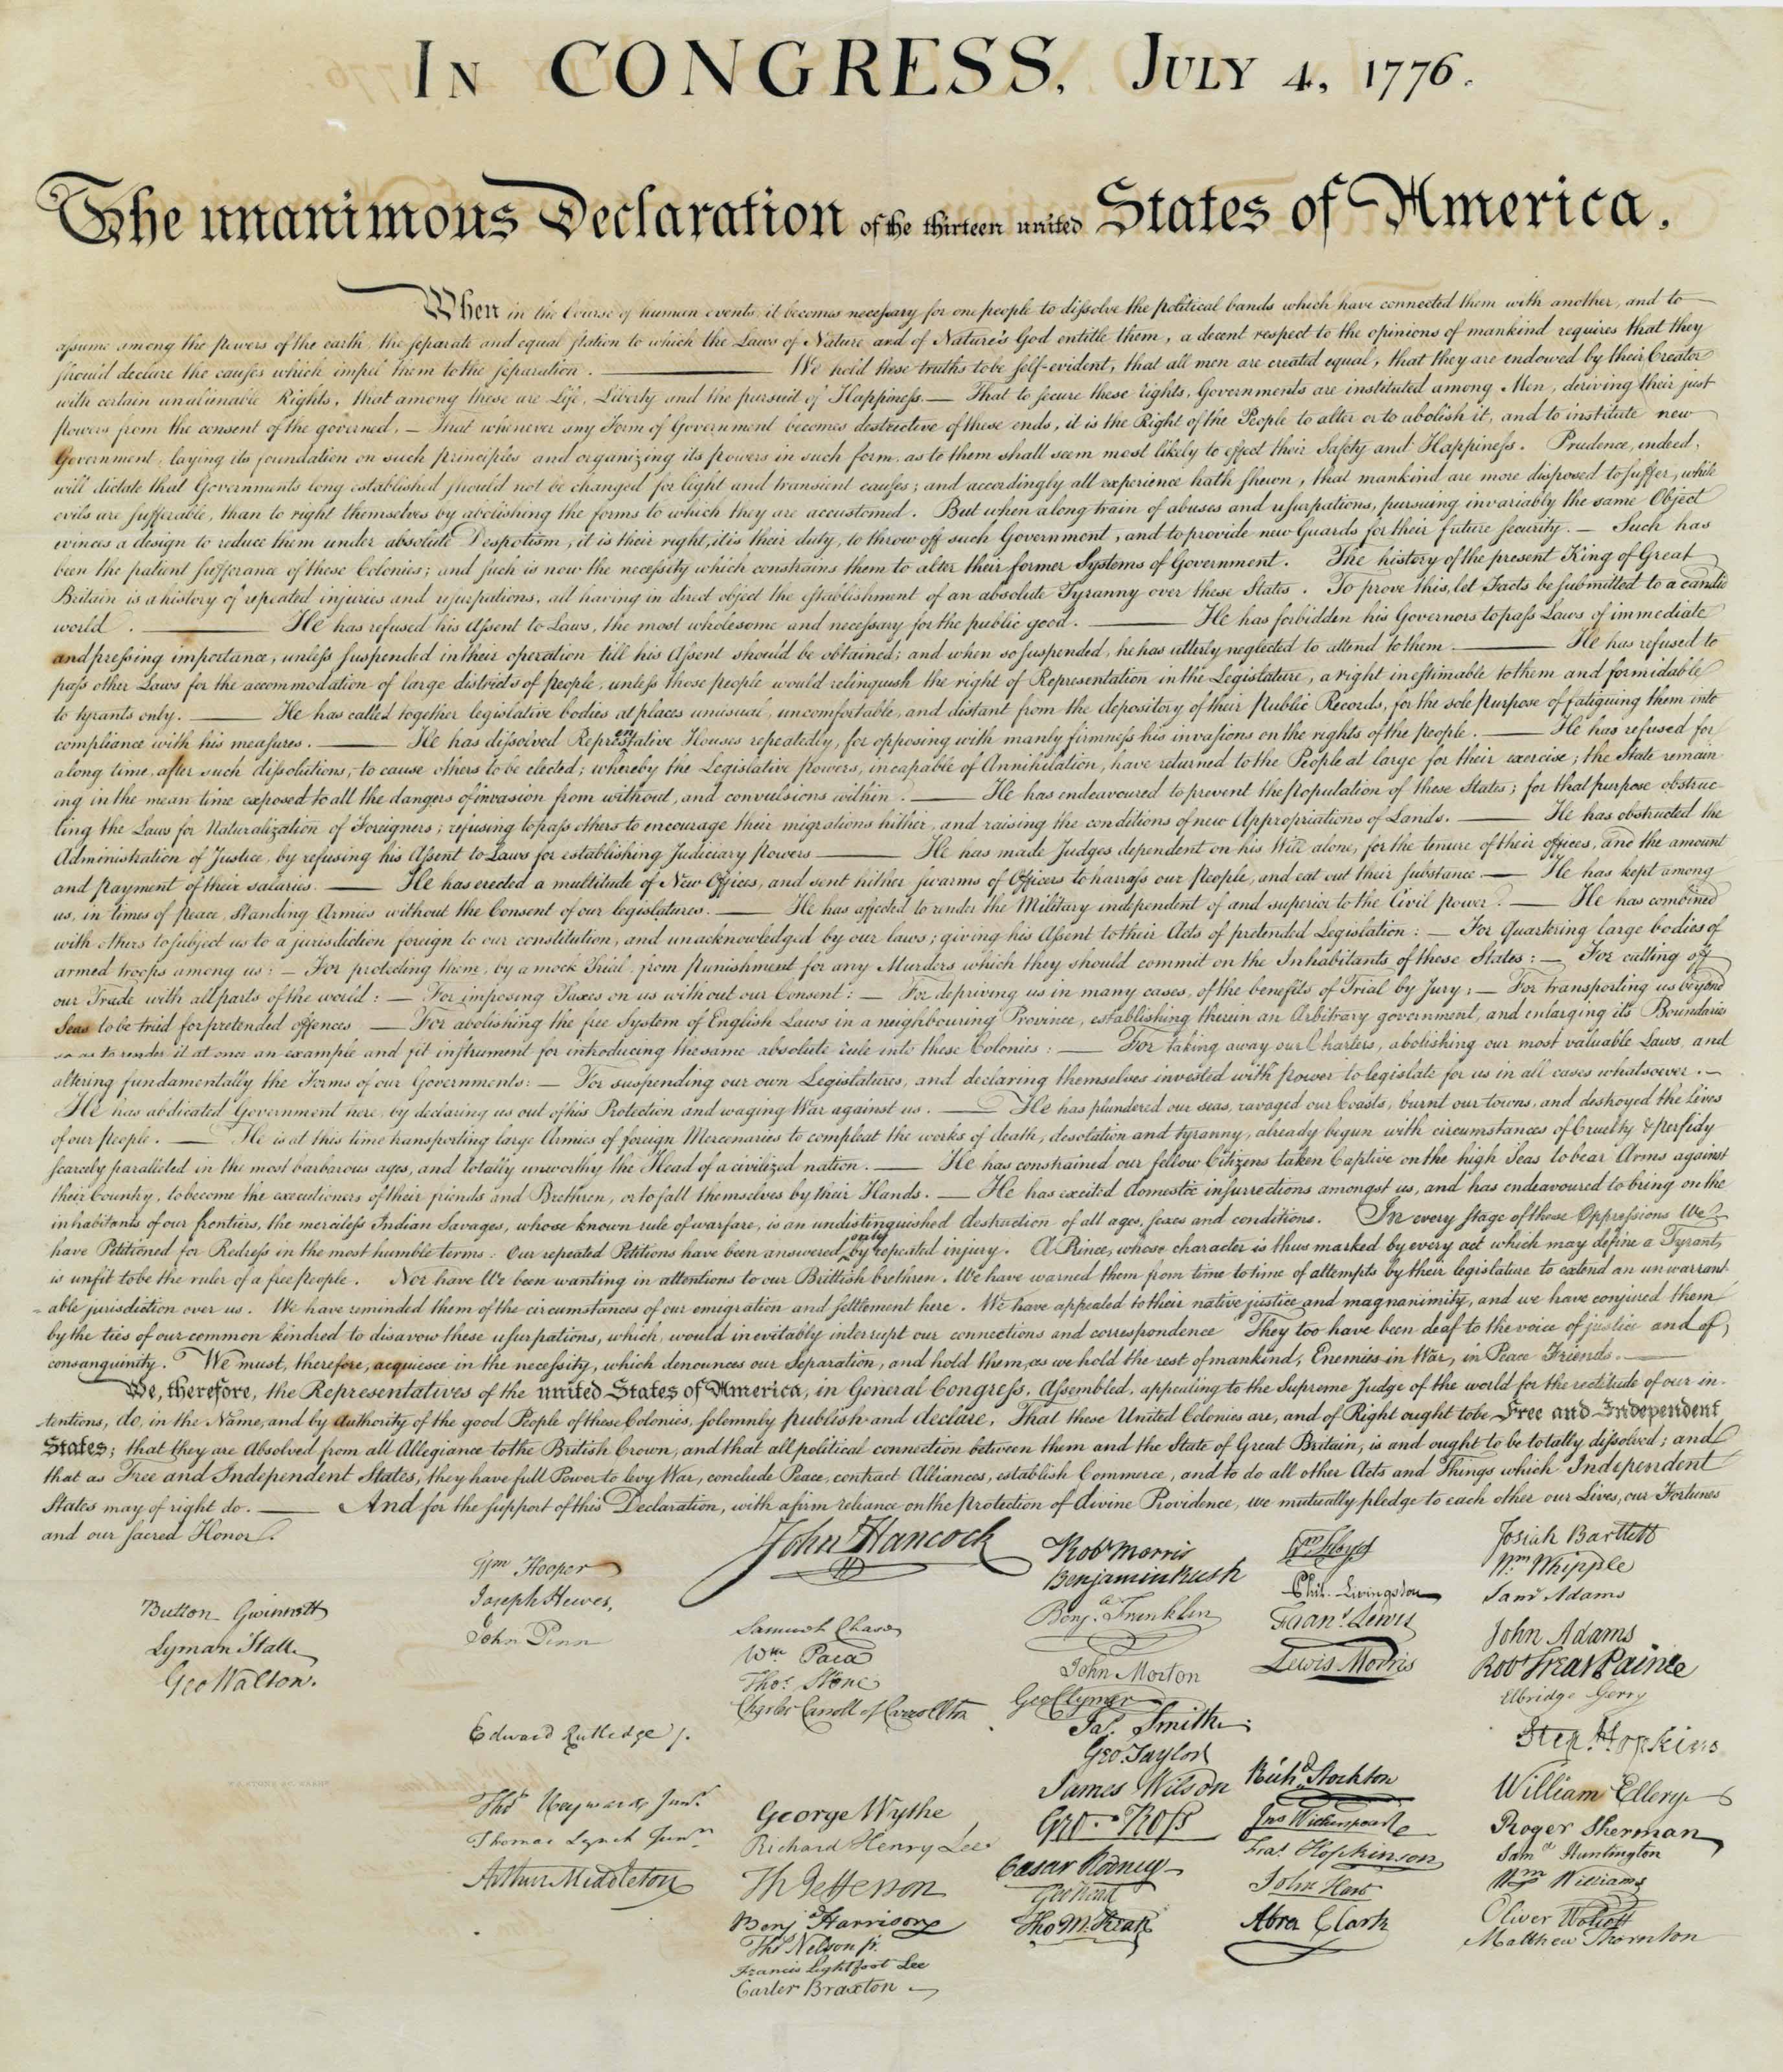 IN CONGRESS, JULY 4, 1776.
The unanimous Declaration of the thirteen united States of America,
When in the Course of human events, it becomes necessary for one people to dissolve the political bands which have connected them with another, and to
assume among the powers of the earth, the separate and equal station to which the Laws of Nature and of Nature's God entitle them, a decent respect to the opinions of mankind requires that they
should declare the causes which impel them to the separation. — We hold these truths to be self-evident, that all men are created equal, that they are endowed by their Creator
with certain unalienable Rights, that among these are Life, Liberty and the pursuit of Happiness. — That to secure these rights, Governments are instituted among Men, deriving their just
powers from the consent of the governed, — That whenever any Form of Government becomes destructive of these ends, it is the Right of the People to alter or to abolish it, and to institute new
Government, laying its foundation on such principles and organizing its powers in such form, as to them shall seem most likely to effect their Safety and Happiness. Prudence, indeed,
will dictate that Governments long established should not be changed for light and transient causes; and accordingly all experience hath shewn, that mankind are more disposed to suffer, while
evils are sufferable, than to right themselves by abolishing the forms to which they are accustomed. But when a long train of abuses and usurpations, pursuing invariably the same Object
evinces a design to reduce them under absolute Despotism, it is their right, it is their duty, to throw off such Government, and to provide new Guards for their future security. — Such has
been the patient sufferance of these Colonies; and such is now the necessity which constrains them to alter their former Systems of Government. The history of the present King of Great
Britain is a history of repeated injuries and usurpations, all having in direct object the establishment of an absolute Tyranny over these States. To prove this, let Facts be submitted to a candid
world. — He has refused his Assent to Laws, the most wholesome and necessary for the public good. — He has forbidden his Governors to pass Laws of immediate
and pressing importance, unless suspended in their operation till his Assent should be obtained; and when so suspended, he has utterly neglected to attend to them. — He has refused to
pass other Laws for the accommodation of large districts of people, unless those people would relinquish the right of Representation in the Legislature, a right inestimable to them and formidable
to tyrants only. — He has called together legislative bodies at places unusual, uncomfortable, and distant from the depository of their Public Records, for the sole purpose of fatiguing them into
compliance with his measures. — He has dissolved Representative Houses repeatedly, for opposing with manly firmness his invasions on the rights of the people. — He has refused for
a long time, after such dissolutions, to cause others to be elected; whereby the Legislative powers, incapable of Annihilation, have returned to the People at large for their exercise; the State remain
ing in the mean time exposed to all the dangers of invasion from without, and convulsions within. — He has endeavoured to prevent the population of these States; for that purpose obstruc-
ting the Laws for Naturalization of Foreigners; refusing to pass others to encourage their migrations hither, and raising the conditions of new Appropriations of Lands. — He has obstructed the
Administration of Justice, by refusing his Assent to Laws for establishing Judiciary powers — He has made Judges dependent on his Will alone, for the tenure of their offices, and the amount
and payment of their salaries. — He has erected a multitude of New Offices, and sent hither swarms of Officers to harrass our people, and eat out their substance. — He has kept among
us, in times of peace, Standing Armies without the Consent of our legislatures. — He has affected to render the Military independent of and superior to the Civil power. — He has combined
with others to subject us to a jurisdiction foreign to our constitution, and unacknowledged by our laws; giving his Assent to their Acts of pretended Legislation: — For Quartering large bodies of
armed troops among us: — For protecting them, by a mock Trial, from punishment for any Murders which they should commit on the Inhabitants of these States: — For cutting off
our Trade with all parts of the world: — For imposing Taxes on us without our Consent: — For depriving us in many cases, of the benefits of Trial by Jury; — For transporting us beyond
Seas to be tried for pretended offences — For abolishing the free System of English Laws in a neighbouring Province, establishing therein an Arbitrary government, and enlarging its Boundaries
so as to render it at once an example and fit instrument for introducing the same absolute rule into these Colonies: — For taking away our Charters, abolishing our most valuable Laws, and
altering fundamentally the Forms of our Governments: — For suspending our own Legislatures, and declaring themselves invested with power to legislate for us in all cases whatsoever. —
He has abdicated Government here, by declaring us out of his Protection and waging War against us. — He has plundered our seas, ravaged our Coasts, burnt our towns, and destroyed the Lives
of our people. — He is at this time transporting large Armies of foreign Mercenaries to compleat the works of death, desolation and tyranny, already begun with circumstances of Cruelty & perfidy
scarcely paralleled in the most barbarous ages, and totally unworthy the Head of a civilized nation. — He has constrained our fellow Citizens taken Captive on the high Seas to bear Arms against
their Country, to become the executioners of their friends and Brethren, or to fall themselves by their Hands. — He has excited domestic insurrections amongst us, and has endeavoured to bring on the
inhabitants of our frontiers, the merciless Indian Savages, whose known rule of warfare, is an undistinguished destruction of all ages, sexes and conditions. In every stage of these Oppressions We
have Petitioned for Redress in the most humble terms: Our repeated Petitions have been answered only by repeated injury. A Prince, whose character is thus marked by every act which may define a Tyrant,
is unfit to be the ruler of a free people. Nor have We been wanting in attentions to our Brittish brethren. We have warned them from time to time of attempts by their legislature to extend an unwarrant
able jurisdiction over us. We have reminded them of the circumstances of our emigration and settlement here. We have appealed to their native justice and magnanimity, and we have conjured them
by the ties of our common kindred to disavow these usurpations, which, would inevitably interrupt our connections and correspondence They too have been deaf to the voice of justice and of
consanguinity. We must, therefore, acquiesce in the necessity, which denounces our Separation, and hold them, as we hold the rest of mankind, Enemies in War, in Peace Friends. —
We, therefore, the Representatives of the united States of America, in General Congress, Assembled, appealing to the Supreme Judge of the world for the rectitude of our in-
tentions, do, in the Name, and by Authority of the good People of these Colonies, solemnly publish and declare, That these United Colonies are, and of Right ought to be Free and Independent
States; that they are Absolved from all Allegiance to the British Crown, and that all political connection between them and the State of Great Britain, is and ought to be totally dissolved; and
that as Free and Independent States, they have full Power to levy War, conclude Peace, contract Alliances, establish Commerce, and to do all other Acts and Things which Independent
States may of right do. — And for the support of this Declaration, with a firm reliance on the protection of divine Providence, we mutually pledge to each other our Lives, our Fortunes
and our sacred Honor.
Button Gwinnett
Lyman Hall
Geo Walton.
Wm Hooper
Joseph Hewes,
John Penn
Edward Rutledge /.
Thos Heyward Junr.
Thomas Lynch Junr.
Arthur Middleton
John Hancock
Samuel Chase
Wm Paca
Thos Stone
Charles Carroll of Carrollton
George Wythe
Richard Henry Lee
Th Jefferson
Benj Harrison
Thos Nelson jr.
Francis Lightfoot Lee
Carter Braxton
Robt Morris
Benjamin Rush
Benja. Franklin
John Morton
Geo Clymer
Jas. Smith
Geo. Taylor
James Wilson
Geo. Ross
Caesar Rodney
Geo Read
Tho M:Kean
Wm Floyd
Phil. Livingston
Frans. Lewis
Lewis Morris
Richd. Stockton
Jno Witherspoon
Fras. Hopkinson
John Hart
Abra Clark
Josiah Bartlett
Wm Whipple
Saml Adams
John Adams
Robt Treat Paine
Elbridge Gerry
Step. Hopkins
William Ellery
Roger Sherman
Saml Huntington
Wm Williams
Oliver Wolcott
Matthew Thornton